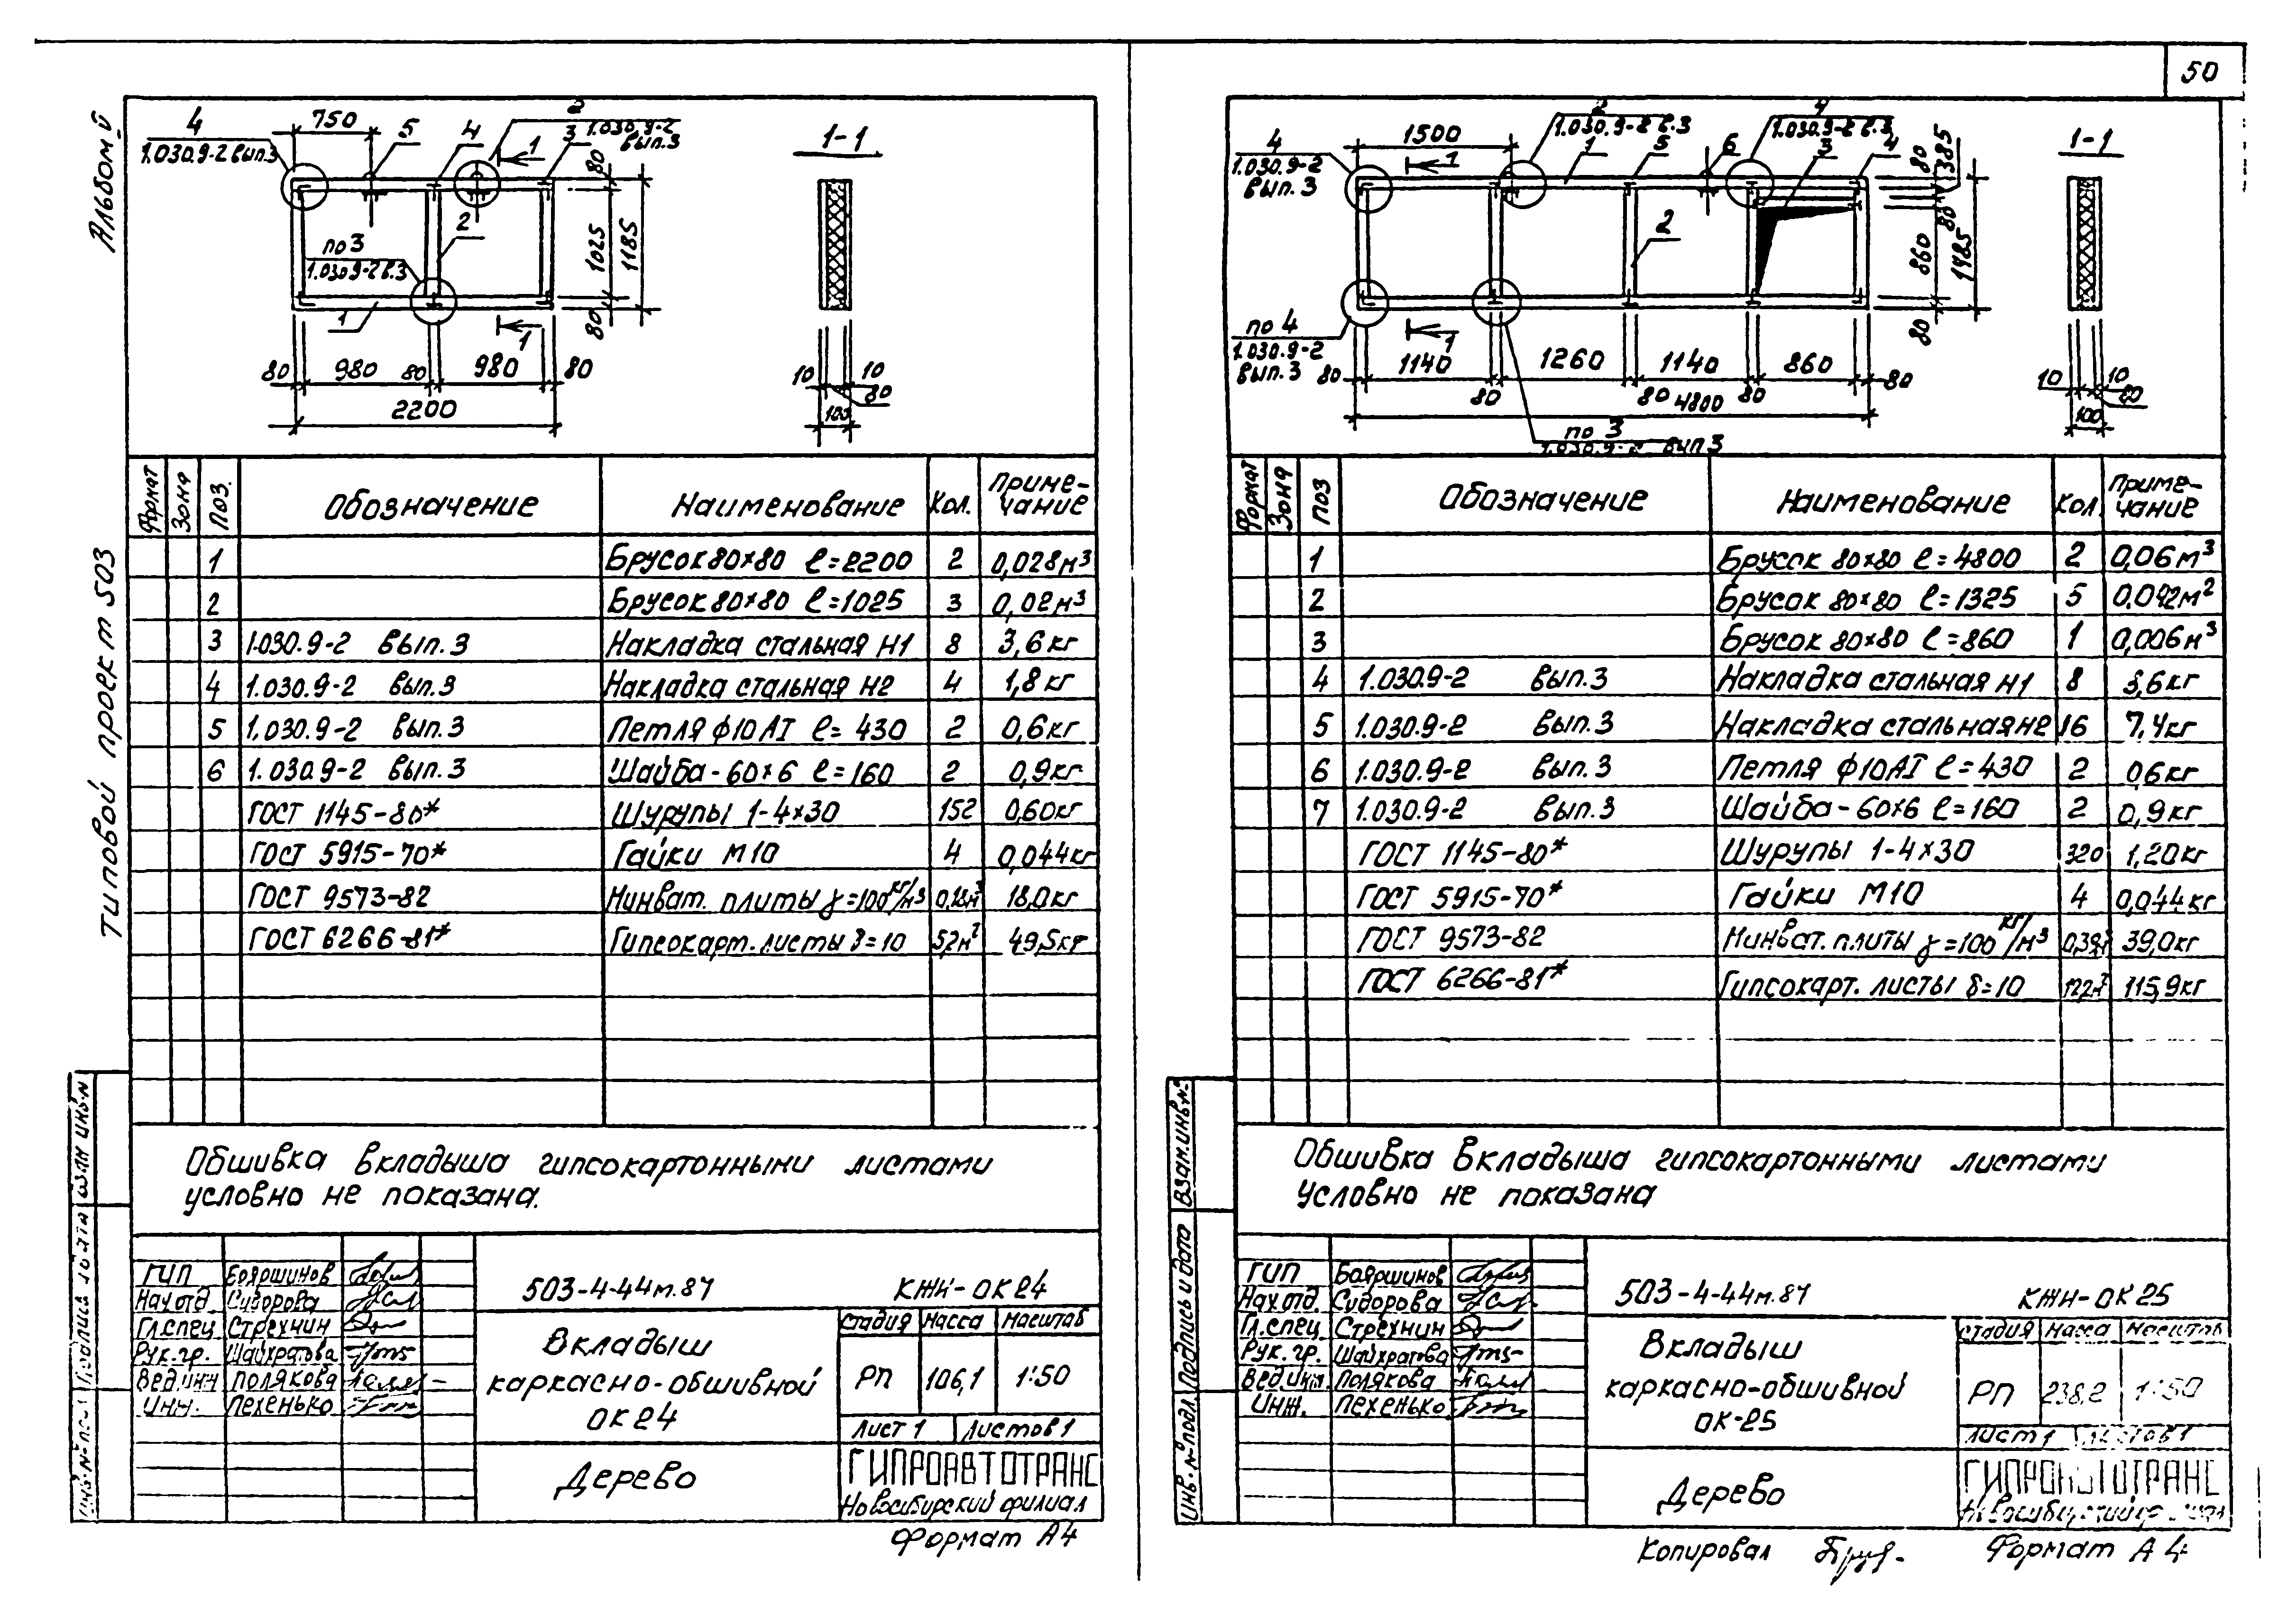 50
Альбом V
Типовой проект 503
4
1.030.9-2 вып.3
750
5
4
2
1.030.9-2
вып.3
1
3
80
1025
1185
80
2
по 3
1.030.9-2 в.3
1
1
80 980 80 980 80
2200
1-1
10 10
80
100
Формат Зона Поз. Обозначение Наименование Кол. Приме-
чание
1 Брусок 80×80 ℓ=2200 2 0,028м³
2 Брусок 80×80 ℓ=1025 3 0,02м³
3 1.030.9-2 вып.3 Накладка стальная Н1 8 3,6кг
4 1.030.9-2 вып.3 Накладка стальная Н2 4 1,8кг
5 1.030.9-2 вып.3 Петля ф10АI ℓ=430 2 0,6кг
6 1.030.9-2 вып.3 Шайба-60×6 ℓ=160 2 0,9кг
ГОСТ 1145-80* Шурупы 1-4×30 152 0,60кг
ГОСТ 5915-70* Гайки М10 4 0,044кг
ГОСТ 9573-82 Минват. плиты γ=100кг/м³ 0,18м³ 18,0кг
ГОСТ 6266-81* Гипсокарт. листы δ=10 5,2м² 49,5кг
Обшивка вкладыша гипсокартонными листами
условно не показана.
ГИП Бояршинов
Нач.отд. Сидорова
Гл.спец Стрехнин
Рук.гр. Шайхратова
Вед.инж Полякова
Инж. Пехенько
503-4-44м.87 КЖИ-ОК24
Вкладыш
каркасно-обшивной
ОК24
Стадия Масса Масштаб
РП 106,1 1:50
Лист 1 Листов 1
Дерево
ГИПРОАВТОТРАНС
Новосибирский филиал
Формат А4
4
1.030.9-2
вып.3
1500
2
1.030.9-2 в.3
1
1
5
6
4
1.030.9-2 в.3
3
4
80
385
80
860
1485
80
2
по 4
1.030.9-2
вып.3
1
80 1140 80 1260 80 1140 80 860 80
4800
по 3
1.030.9-2 вып.3
1-1
10 10
80
100
Формат Зона Поз Обозначение Наименование Кол. Приме-
чание
1 Брусок 80×80 ℓ=4800 2 0,06м³
2 Брусок 80×80 ℓ=1325 5 0,042м²
3 Брусок 80×80 ℓ=860 1 0,006м³
4 1.030.9-2 вып.3 Накладка стальная Н1 8 3,6кг
5 1.030.9-2 вып.3 Накладка стальная Н2 16 7,4кг
6 1.030.9-2 вып.3 Петля ф10АI ℓ=430 2 0,6кг
7 1.030.9-2 вып.3 Шайба-60×6 ℓ=160 2 0,9кг
ГОСТ 1145-80* Шурупы 1-4×30 320 1,20кг
ГОСТ 5915-70* Гайки М10 4 0,044кг
ГОСТ 9573-82 Минват. плиты γ=100кг/м³ 0,39м³ 39,0кг
ГОСТ 6266-81* Гипсокарт. листы δ=10 12,2м² 115,9кг
Обшивка вкладыша гипсокартонными листами
условно не показана
Взам.инв.№
Подпись и дата
Инв.№подл
ГИП Бояршинов
Нач.отд. Сидорова
Гл.спец Стрехнин
Рук.гр. Шайхратова
Вед.инж. Полякова
Инж. Пехенько
503-4-44м.87 КЖИ-ОК25
Вкладыш
каркасно-обшивной
ОК-25
Стадия Масса Масштаб
РП 238,2 1:50
Лист 1 Листов 1
Дерево
ГИПРОАВТОТРАНС
Новосибирский филиал
Копировал Формат А4